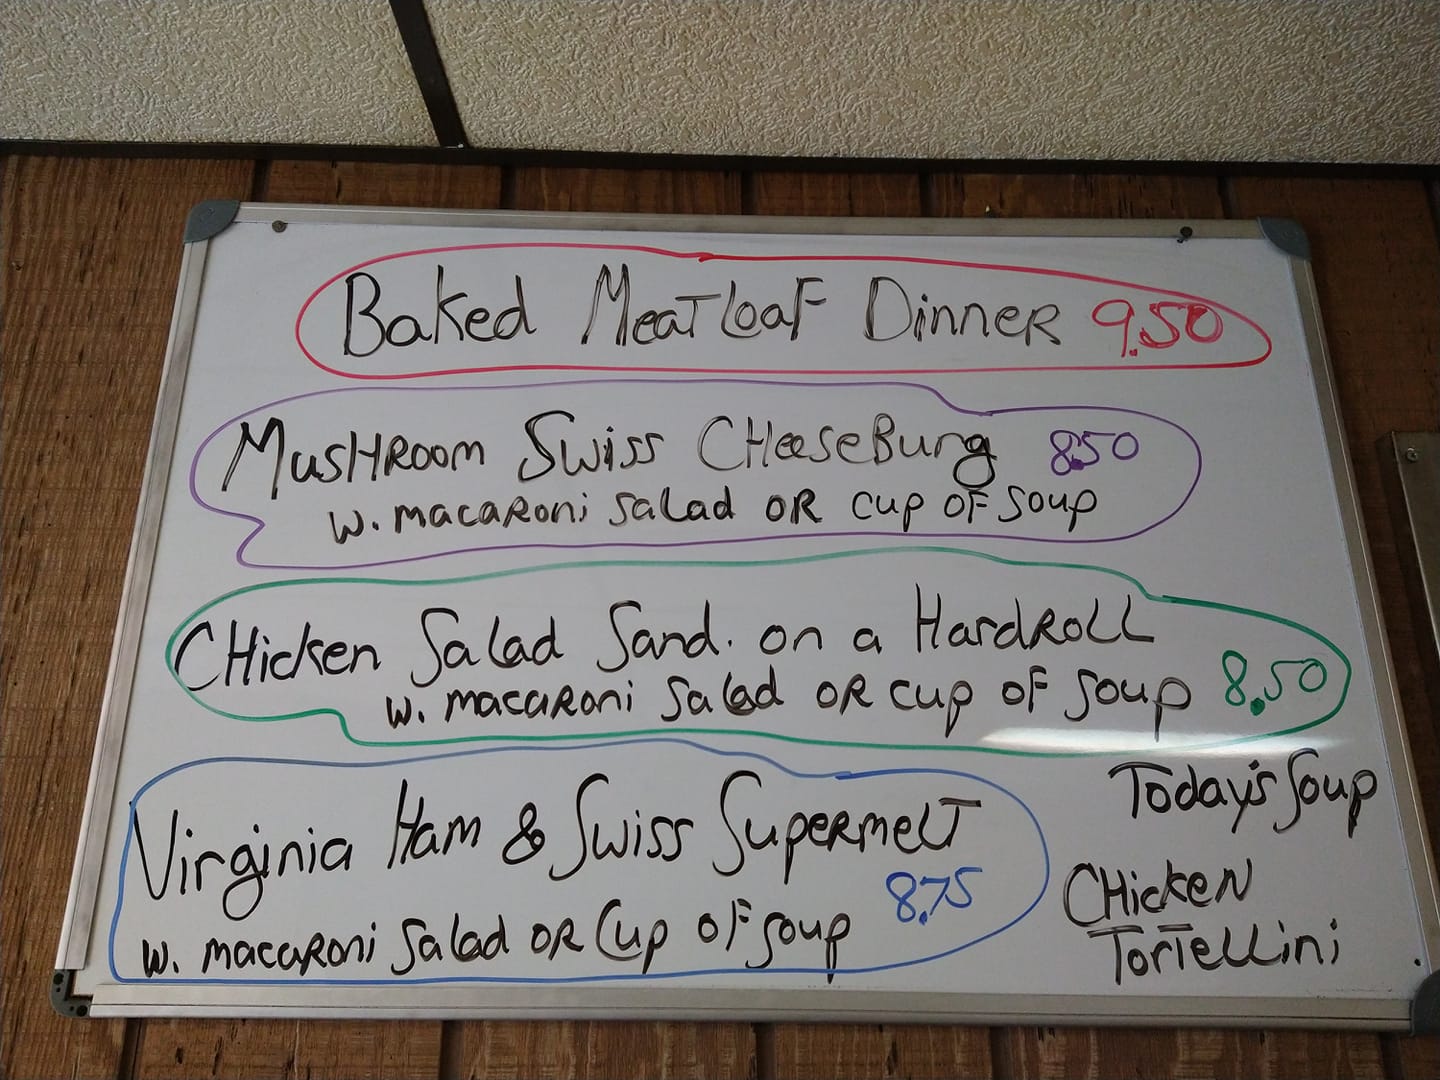 Baked Meatloaf Dinner 9.50
Mushroom Swiss Cheeseburg 8.50
w. macaroni salad or cup of soup
Chicken Salad Sand. on a Hardroll
w. macaroni salad or cup of soup 8.50
Virginia Ham & Swiss Supermelt
8.75
w. macaroni salad or cup of soup
Today's Soup
Chicken
Tortellini